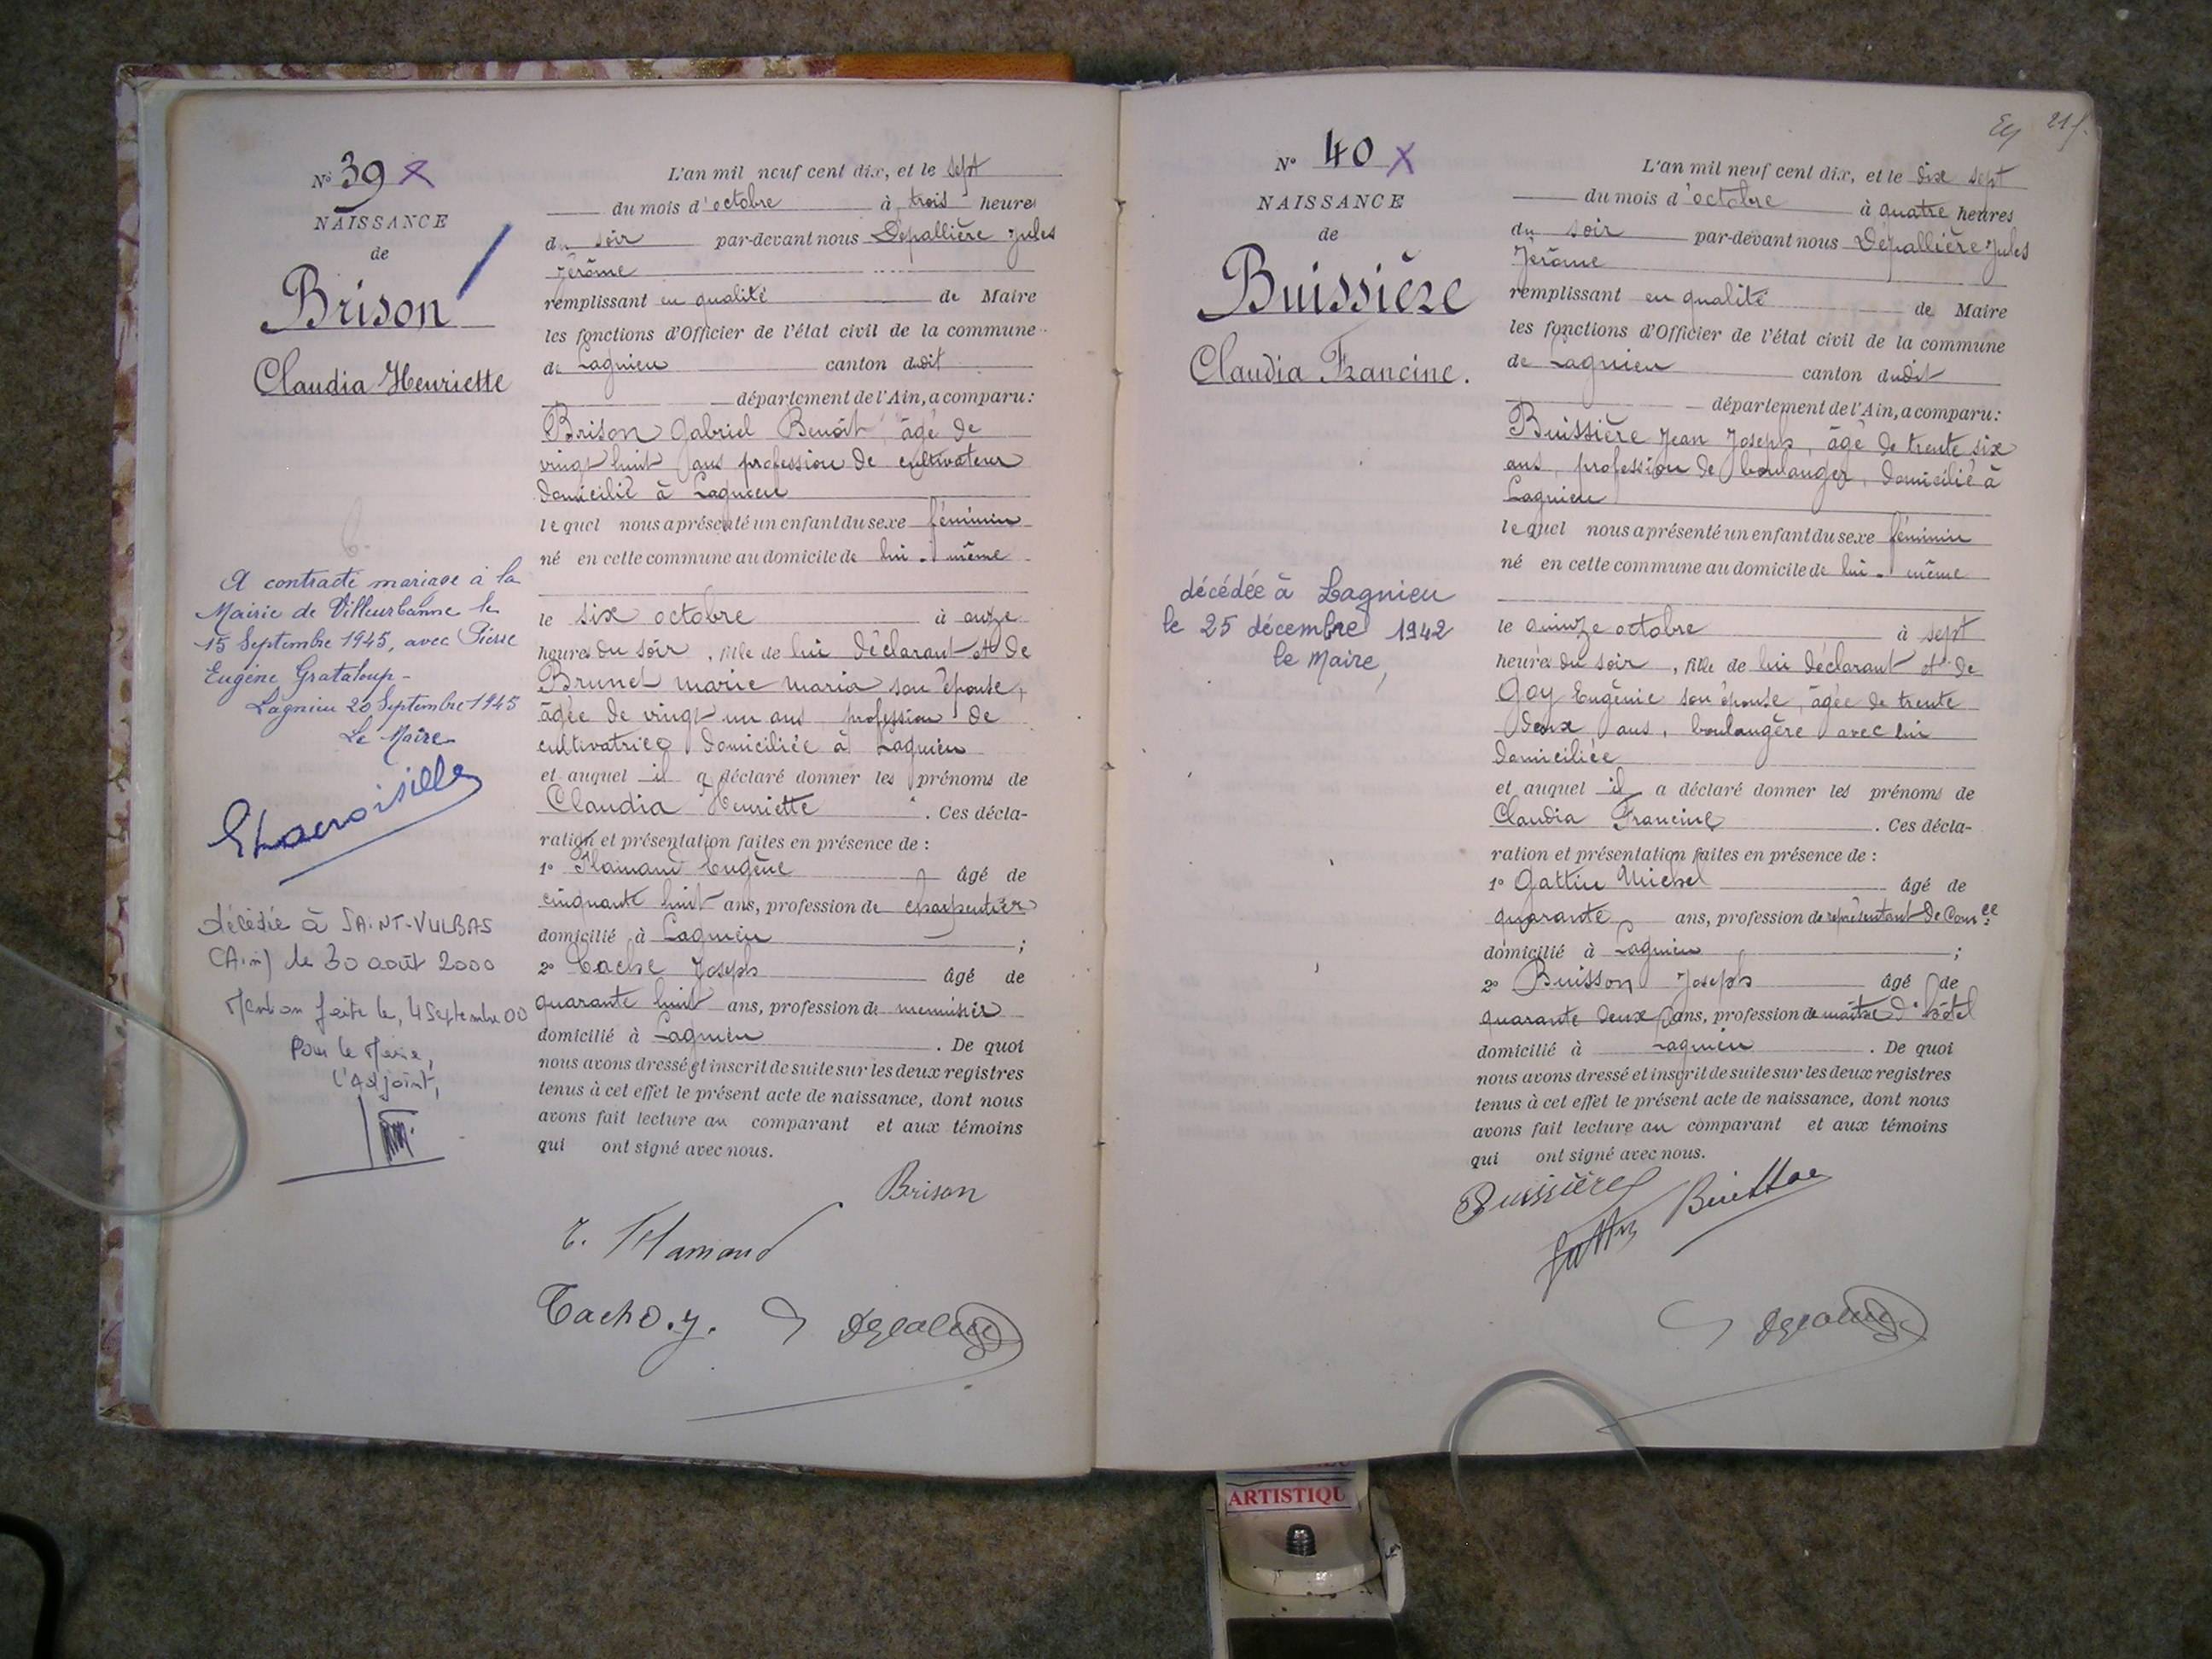 N° 39 X
NAISSANCE
de
Brison
Claudia Henriette
A contracté mariage à la
Mairie de Villeurbanne le
15 Septembre 1945, avec Pierre
Eugène Grataloup -
Lagnieu 20 Septembre 1945
Le Maire
décédée à SAINT-VULBAS
(Ain) le 30 août 2000
Mention faite le, 4 Septembre 00
Pour le Maire,
l'Adjoint,
L'an mil neuf cent dix, et le sept
du mois d'octobre à trois heures
du soir par-devant nous Dépallière Jules
Jérôme
remplissant en qualité de Maire
les fonctions d'Officier de l'état civil de la commune
de Lagnieu canton dudit
département de l'Ain, a comparu :
Brison Gabriel Benoît, âgé de
vingt huit ans profession de cultivateur
domicilié à Lagnieu
lequel nous a présenté un enfant du sexe féminin
né en cette commune au domicile de lui-même
le six octobre à onze
heures du soir, fille de lui déclarant et de
Brunet marie maria son épouse,
âgée de vingt un ans profession de
cultivatrice domiciliée à Lagnieu
et auquel il a déclaré donner les prénoms de
Claudia Henriette . Ces décla-
ration et présentation faites en présence de :
1° Flamand Eugène âgé de
cinquante huit ans, profession de charpentier
domicilié à Lagnieu ;
2° Joseph âgé de
quarante huit ans, profession de menuisier
domicilié à Lagnieu . De quoi
nous avons dressé et inscrit de suite sur les deux registres
tenus à cet effet le présent acte de naissance, dont nous
avons fait lecture au comparant et aux témoins
qui ont signé avec nous.
Brison
Flamand
N° 40 X
NAISSANCE
de
Buissière
Claudia Francine.
décédée à Lagnieu
le 25 décembre 1942
le Maire,
L'an mil neuf cent dix, et le dix sept
du mois d'octobre à quatre heures
du soir par-devant nous Dépallière Jules
Jérôme
remplissant en qualité de Maire
les fonctions d'Officier de l'état civil de la commune
de Lagnieu canton dudit
département de l'Ain, a comparu :
Buissière Jean Joseph, âgé de trente six
ans, profession de boulanger, domicilié à
Lagnieu
lequel nous a présenté un enfant du sexe féminin
né en cette commune au domicile de lui-même
le quinze octobre à sept
heures du soir, fille de lui déclarant et de
Goy Eugénie son épouse, âgée de trente
deux ans, boulangère avec lui
domiciliée
et auquel il a déclaré donner les prénoms de
Claudia Francine . Ces décla-
ration et présentation faites en présence de :
1° Gattin Michel âgé de
quarante ans, profession de représentant de Comce
domicilié à Lagnieu ;
2° Buisson Joseph âgé de
quarante deux ans, profession de maître d'hôtel
domicilié à Lagnieu . De quoi
nous avons dressé et inscrit de suite sur les deux registres
tenus à cet effet le présent acte de naissance, dont nous
avons fait lecture au comparant et aux témoins
qui ont signé avec nous.
Buissière
ARTISTIQU